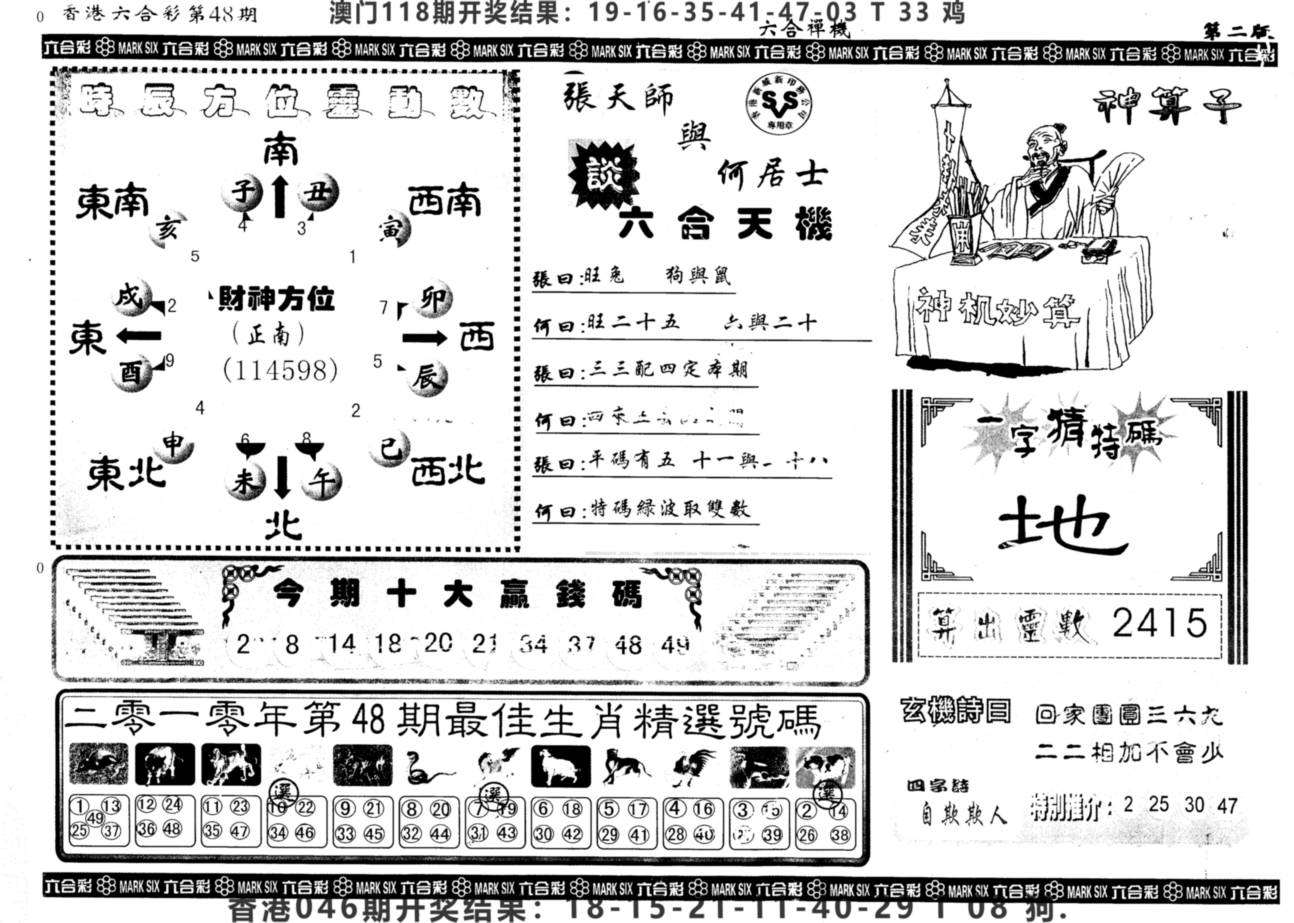 0 香港六合彩第48期
澳门118期开奖结果：19-16-35-41-47-03 T 33 鸡
六合禅機
第二版
六合彩 MARK SIX 六合彩 MARK SIX 六合彩 MARK SIX 六合彩 MARK SIX 六合彩 MARK SIX 六合彩 MARK SIX 六合彩 MARK SIX 六合彩 MARK SIX 六合彩 MARK SIX 六合彩 MARK SIX 六合彩
時辰方位靈動數
南
東南 子 丑 西南
亥 4 3 寅
5 1
戌 2 財神方位 7 卯
東 (正南) 西
酉 9 (114598) 5 辰
4 2
申 6 8 巳
東北 未 午 西北
北
張天師
與
SVS
專用章
談 何居士
六合天機
張曰:旺兔 狗與鼠
何曰:旺二十五 六與二十
張曰:三三配四定本期
何曰:四
張曰:平碼有五 十一與 十八
何曰:特碼綠波取雙數
神算子
神机妙算
一字猜特碼
地
算出靈數 2415
0
今期十大贏錢碼
2 8 14 18 20 21 34 37 48 49
二零一零年第48期最佳生肖精選號碼
選 選 選
1 13 12 24 11 23 10 22 9 21 8 20 7 19 6 18 5 17 4 16 3 15 2 14
49
25 37 36 48 35 47 34 46 33 45 32 44 31 43 30 42 29 41 28 40 39 26 38
玄機詩曰 回家團圓三六九
二二相加不會少
四字詩
自欺欺人 特别推介: 2 25 30 47
六合彩 MARK SIX 六合彩 MARK SIX 六合彩 MARK SIX 六合彩 MARK SIX 六合彩 MARK SIX 六合彩 MARK SIX 六合彩 MARK SIX 六合彩 MARK SIX 六合彩 MARK SIX 六合彩 MARK SIX 六合彩
香港046期开奖结果：18-15-21-11-40-29 T 08 狗.